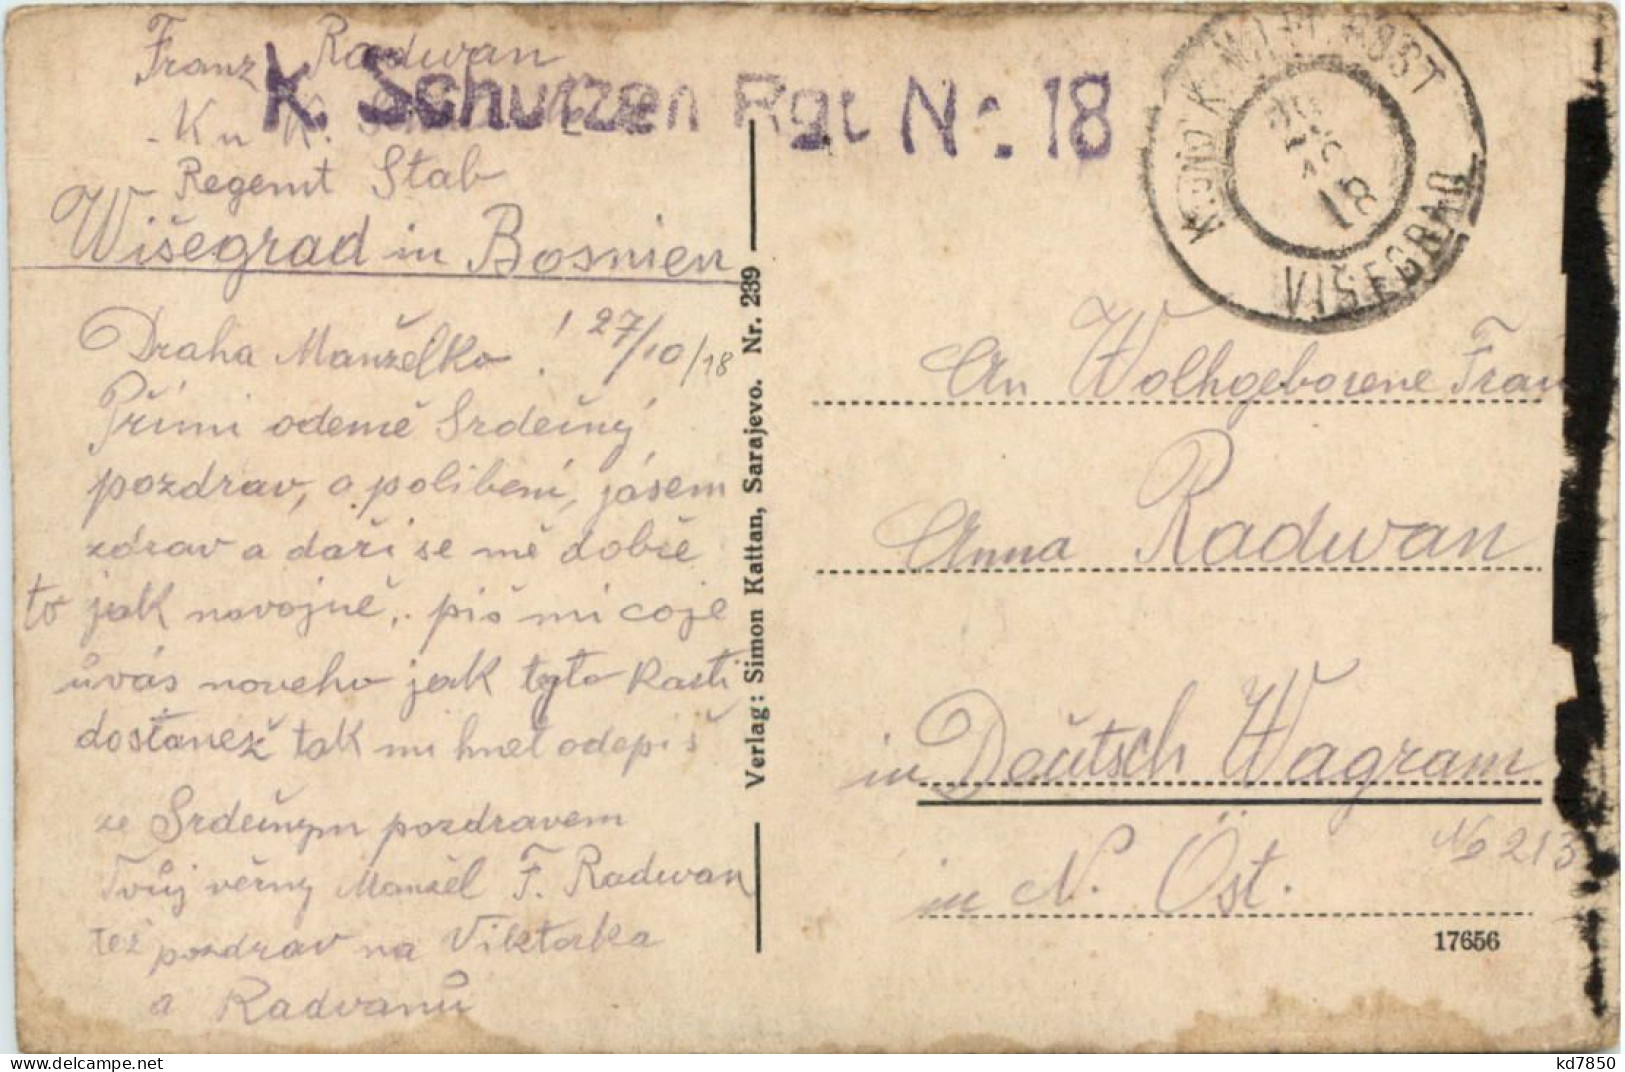 Franz Radwan
K. Schutzen Rgt Nr. 18
K u K.
Regemt Stab
Wišegrad in Bosnien
Draha Manželko! 27/10/18
Přimi odemě Srdečný
pozdrav, a polibení, jásem
zdrav a daři se mě dobře
to jak navojně, piš mi coje
ůvás noveho jak tyto Rasti
dostanež tak mi hnet odepiš
ze Srdečnym pozdravem
Tvůj věrny Manžel F. Radwan
též pozdrav na Viktorka
a Radvanů
Verlag: Simon Kattan, Sarajevo. Nr. 239
K. UND K. MILIT. POST
18
VIŠEGRAD
An Wolhgeborene Frau
Anna Radwan
in Deutsch Wagram
No 213
in N. Öst.
17656
kd7850